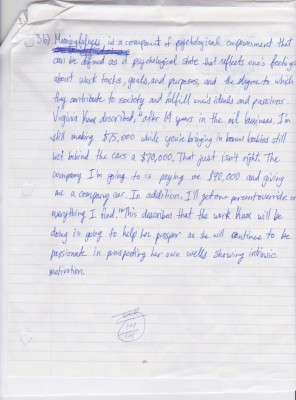 3b) Meaningfulness is a component of psychological empowerment that
can be defined as a psychological state that reflects one's feelings
about work tasks, goals, and purposes, and the degree to which
they contribute to society and fulfill one's ideals and passions.
Virginia Knox described, "after 14 years in the oil business, I'm
still making $75,000 while you're bringing in brown babies still
wet behind the ears a $70,000. That just isn't right. The
company I'm going to is paying me $90,000 and giving
me a company car. In addition, I'll get one percent override on
everything I find." This describes that the work Knox will be
doing in going to help her prosper as she will continue to be
passionate in prospecting her own wells showing intrinsic
motivation.